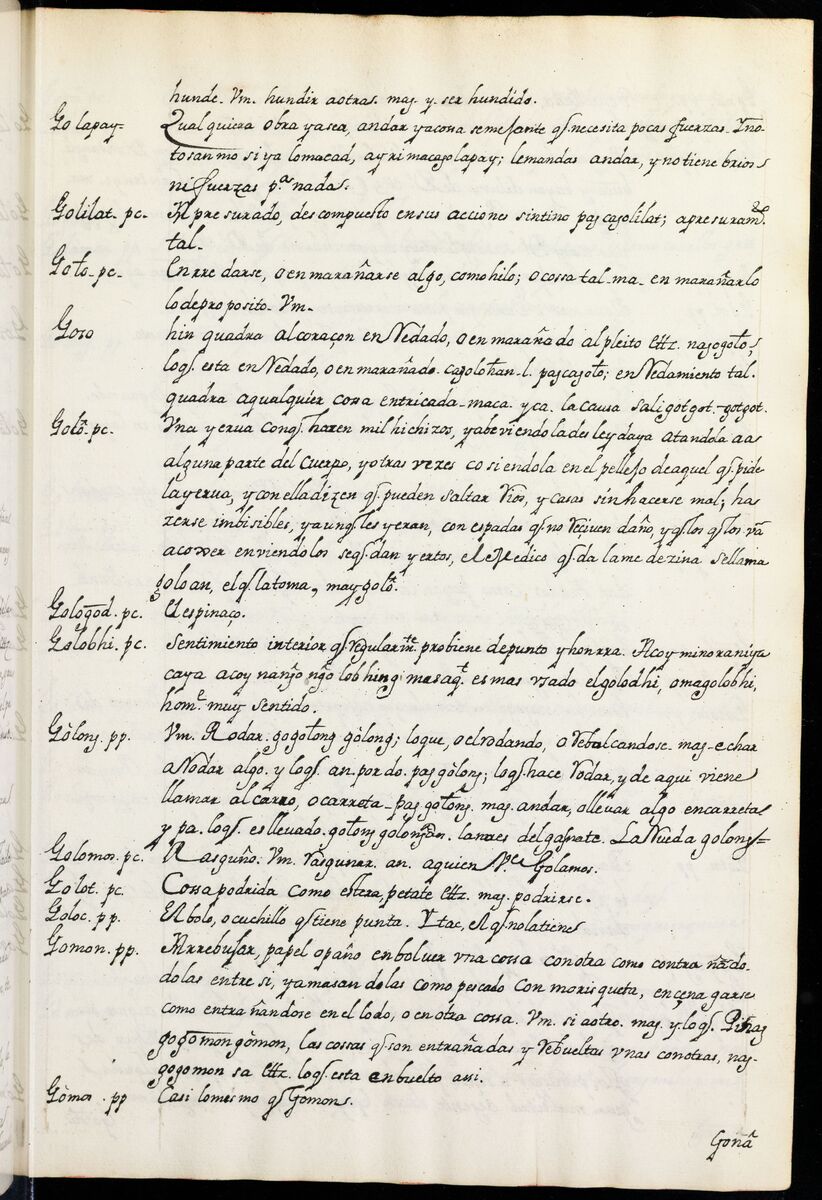 hunde. Vm. hundir aotras. mag. y. ser hundido.
Golapay. Qualquiera obra yasea, andar yacossa semejante q̃. necesita pocas fuerzas. Yno-
tosanmo si ya lomacad, ayrimacagolapay; lemandas andar, y no tiene brios
ni fuerzas pª nada.
Golilat. pc. Apresurado, descompuesto en sus acciones sintino pagcagolilat; apresuramto.
tal.
Goto. pc. Enrredarse, o en marañarse algo, como hilo; o cossa tal. ma. en marañarlo
lo deproposito. Vm.
Goro hin quadra alcoraçon enRedado, o en marañado al pleito &c. nagogoto,
loq̃. esta enRedado, o en marañado. cagolohan. l. pagcagoto; enRedamiento tal.
quadra aqualquier cossa entricada. maca. yca. la causa saligotgot. gotgot.
Golò. pc. Vna yerua conq̃. hazen mil hichizos, yabeviendola desleyda ya atandola a
alguna parte del cuerpo, y otras vezes cosiendola en el pellejo de aquel q̃. pide
layerua, y con ella dizen q̃. pueden saltar Rios, y casas sin hacerse mal; ha
zerse imbisibles, ya unq̃. les yeran, con espadas q̃. no Reçiven daño, y q̃. los q̃. los vã
acoxer en viendolos seq̃. dan yertos, el Medico q̃. da la medezina sellama
goloan, el q̃. la toma, maygolò.
Gologod. pc. El espinaço.
Golobhi. pc. Sentimiento interior q̃ regularmte. probiene depunto y honrra. Acoy minoraniya
caya acoy nanĝo nĝo lobhing masaqt. es mas vsado el golodhi, o magolobhi,
home. muy sentido.
Gòlong. pp. Vm. Rodar. gogolong gòlong; loque, o el rodando, o Rebolcandose. mag. echar
aRodar algo. y loq̃. an. por do. pag gòlong; loq̃. hace Rodar, y de aqui viene
llamar al carro, o carreta. pag golong. mag. andar, o llevar algo encarreta
y pa. loq̃. es llevado. golong golongan. lanres del gasnate. La Rueda golong=
Golomos. pc. Rasguño. Vm. rasguñar. an. aquien Vc. Golamos.
Golot. pc. Cossa podrida como estera, petate &c. mag. podrirse.
Goloc. pp. El bolo, o cuchillo q̃ tiene punta. Ytac, el q̃. no la tiene
Gomon. pp. Arrebujar, papel o paño enboluer vna cossa con otra como contra ñado
dolas entre si, yamasandolas como pescado con morisqueta, en çenagarse
como entrañandose en el lodo, o en otra cossa. Vm. si aotro. mag. y. loq̃. Pinag
gogomon gòmon, las cossas q̃. son entrañadas y Rebueltas vnas con otras, nag-
gogomon sa &c. loq̃. esta enbuelto assi.
Gòmos. pp Casi lomesmo q̃ Gomons.
Gonâ